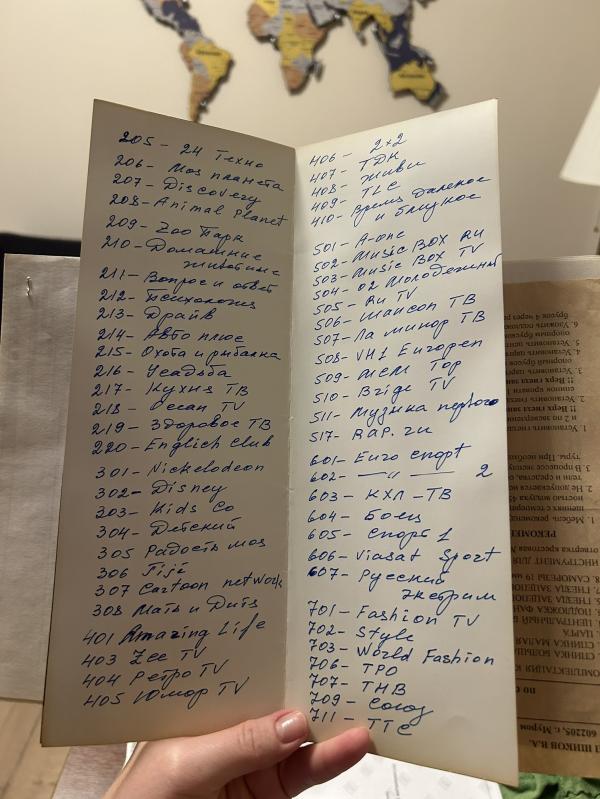 205 - 24 Техно
206 - Моя планета
207 - Discovery
208 - Animal Planet
209 - Zoo Парк
210 - Домашние
животные
211 - Вопрос и ответ
212 - Психология
213 - Драйв
214 - Авто плюс
215 - Охота и рыбалка
216 - Усадьба
217 - Кухня ТВ
218 - Ocean TV
219 - Здоровое ТВ
220 - Englich Club
301 - Nickelodeon
302 - Disney
303 - Kids Co
304 - Детский
305 Радость моя
306 Tiji
307 Cartoon network
308 Мать и Дитя
401 Amazing Life
403 Zee TV
404 Ретро TV
405 Юмор TV
406 - 2x2
407 - ТДК
408 - Живи
409 - TLC
410 - Время далекое
и близкое
501 - A-one
502 - Music BOX RU
503 - Music BOX TV
504 - O2 Молодежный
505 - RU TV
506 - Шансон ТВ
507 - Ла минор ТВ
508 - VH1 Europen
509 - MCM Top
510 - Bridge TV
511 - Музыка первого
517 - RAP. ru
601 - Euro спорт
602 - —〃— 2
603 - КХЛ - ТВ
604 - Боец
605 - Спорт 1
606 - Viasat Sport
607 - Русский
экстрим
701 - Fashion TV
702 - Style
703 - World Fashion
706 - ТРО
707 - ТНВ
709 - Союз
711 - ТТС
602205, г. Муром